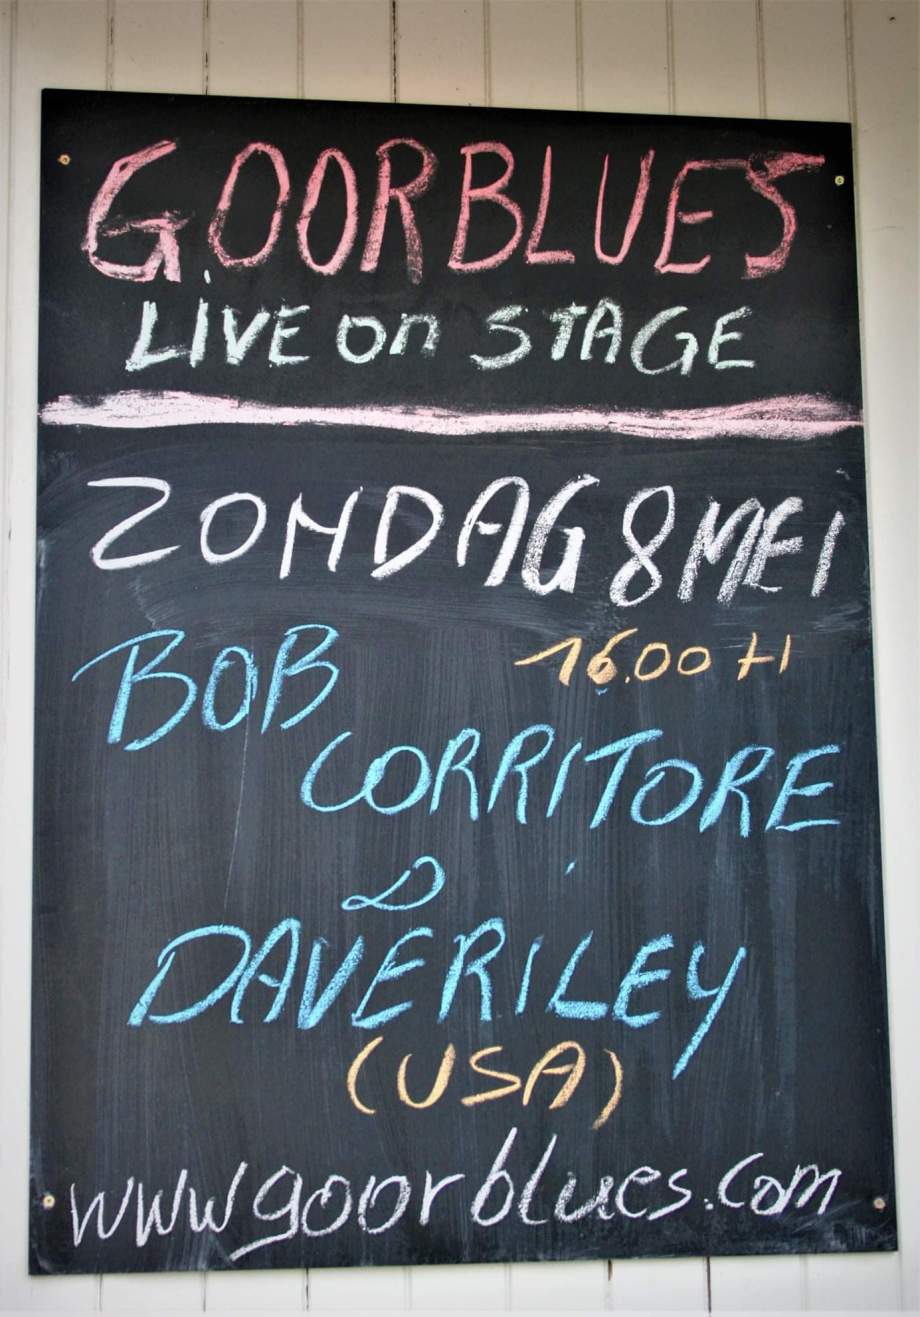 GOORBLUES
LIVE on STAGE
ZONDAG 8 MEI
16.00 H
BOB
CORRITORE
&
DAVE RILEY
(USA)
www goorblues.com